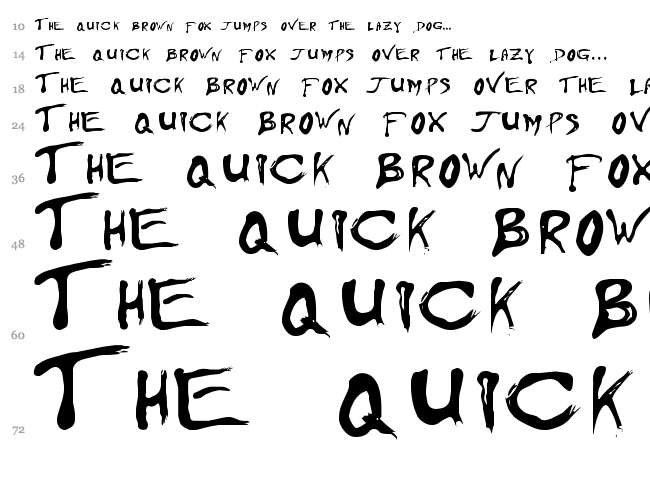 10 The quick brown fox jumps over the lazy dog...
14 The quick brown fox jumps over the lazy dog...
18 The quick brown fox jumps over the la
24 The quick brown fox jumps ov
36 The quick brown fox
48 The quick brow
60 The quick b
72 The quick